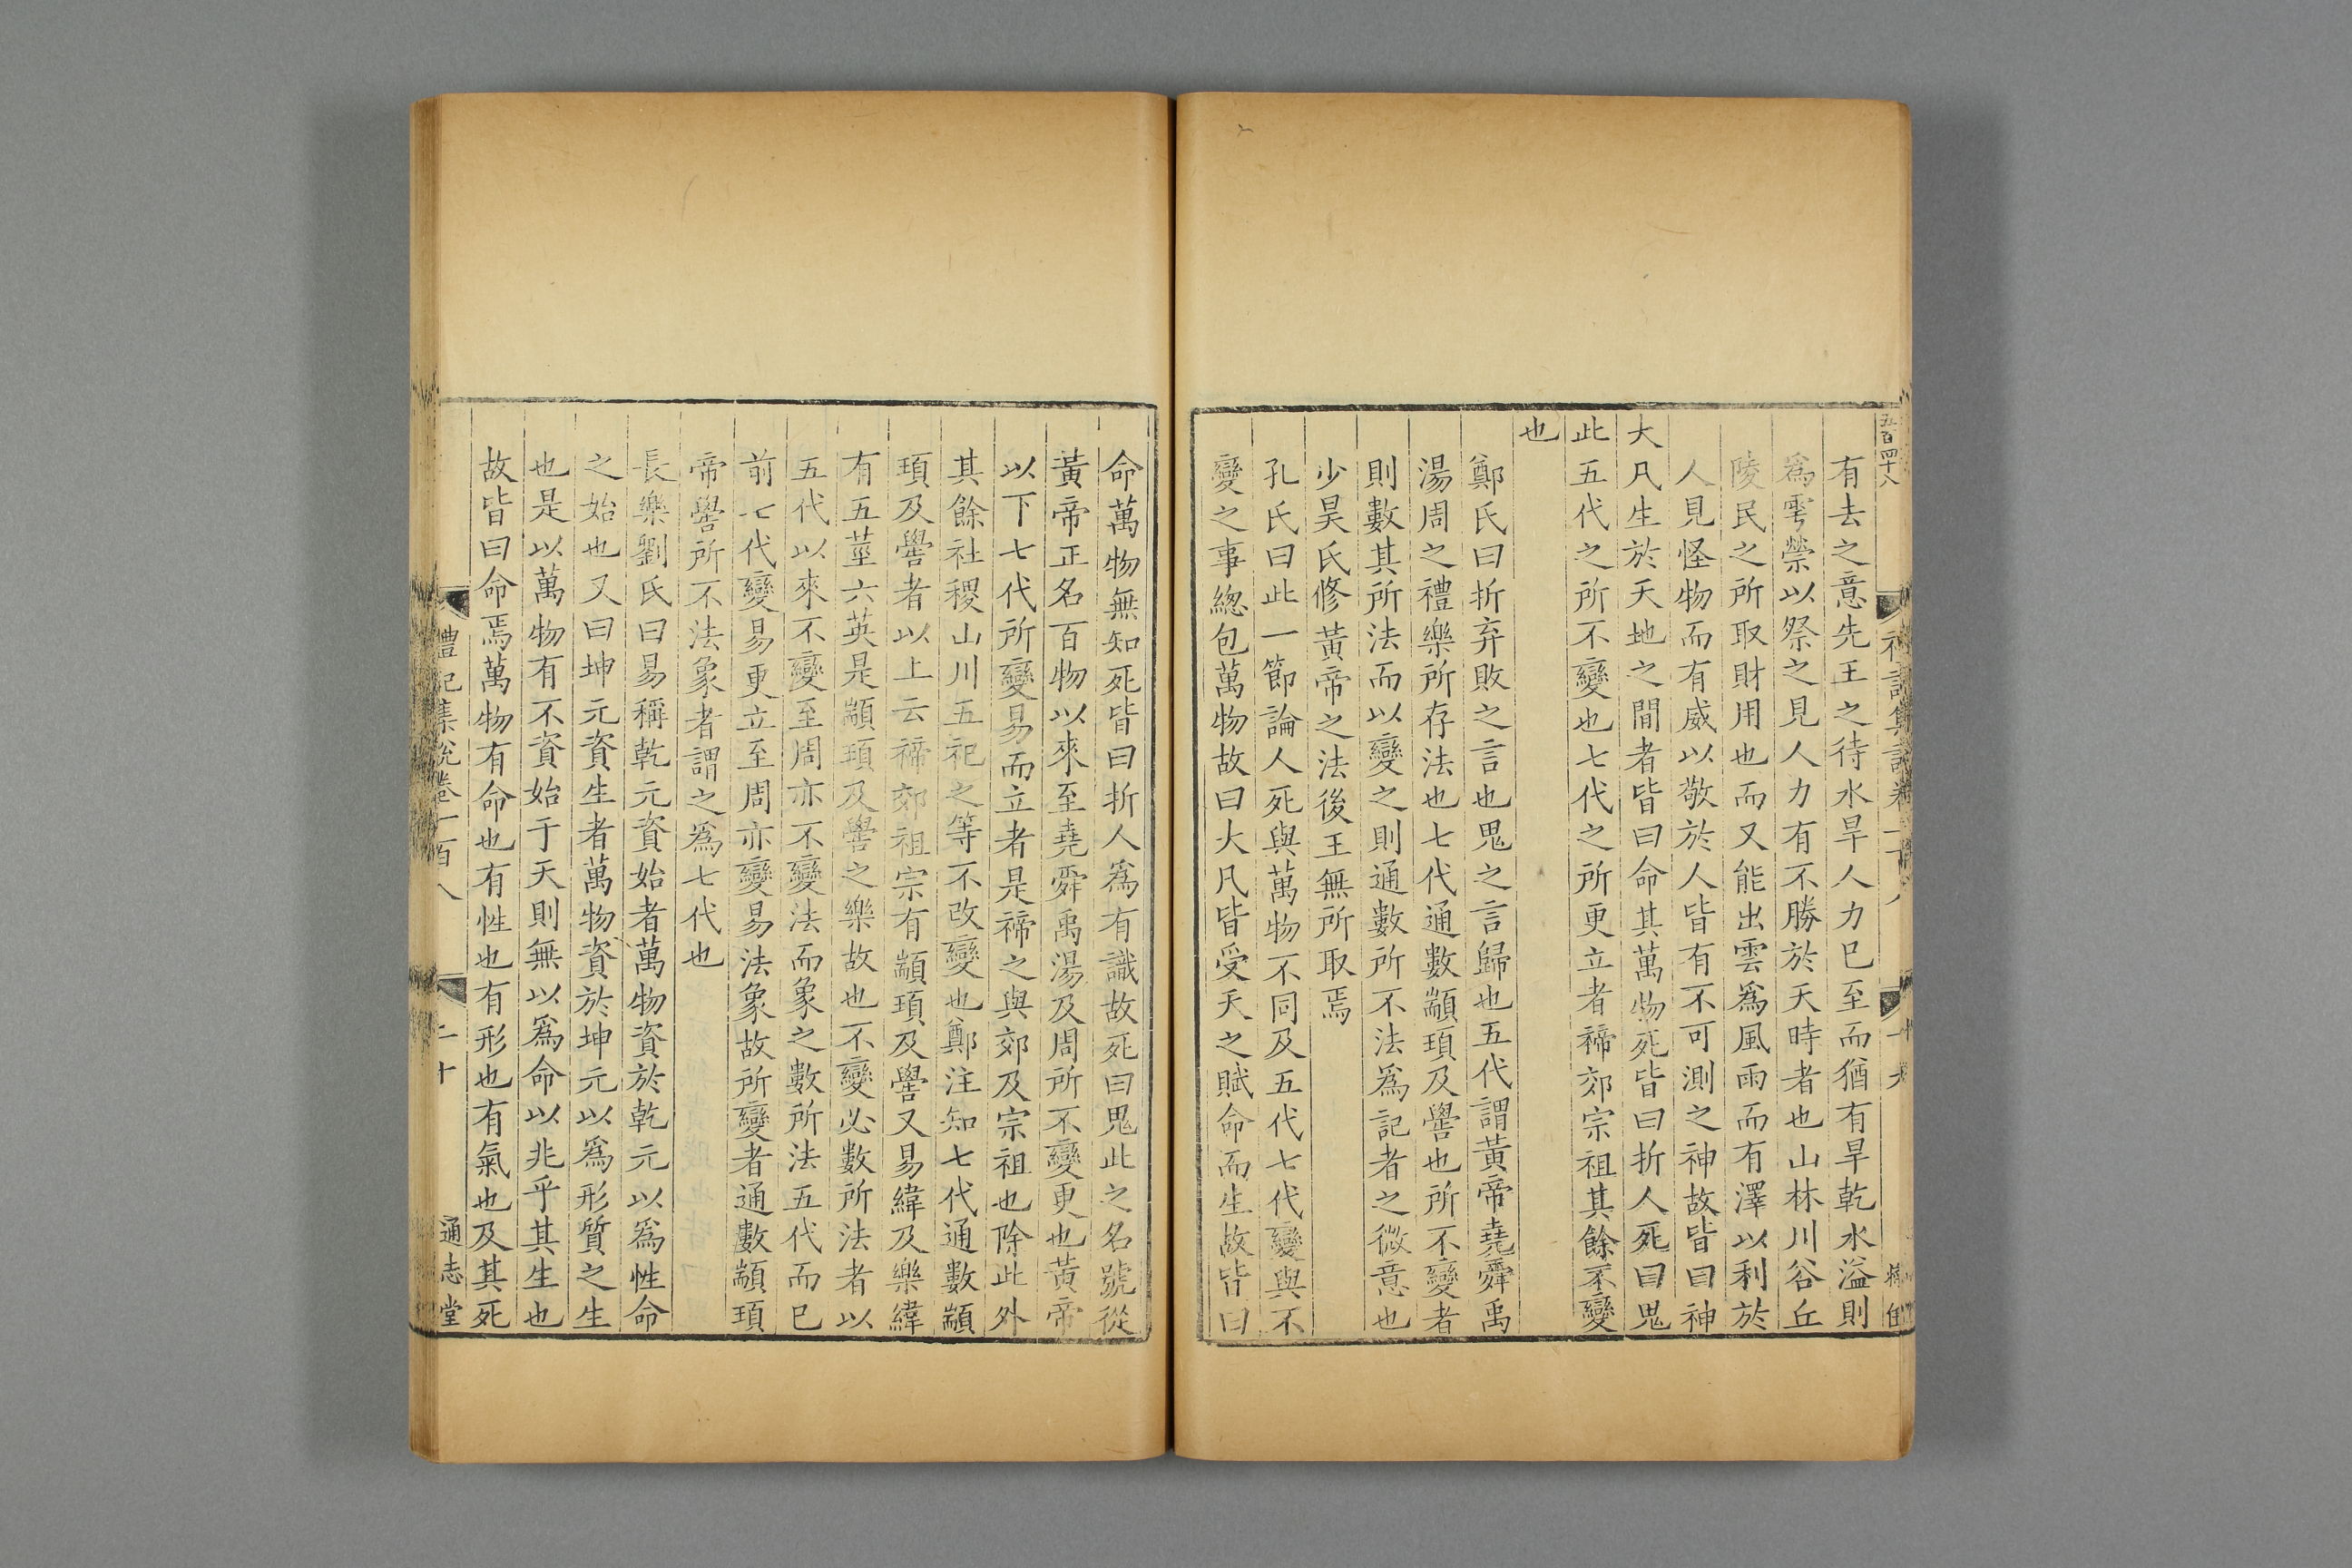 五百四十八
有去之意先王之待水旱人力巳至而猶有旱乾水溢則
爲雩禜以祭之見人力有不勝於天時者也山林川谷丘
陵民之所取財用也而又能出雲爲風雨而有澤以利於
人見怪物而有威以敬於人皆有不可測之神故皆曰神
大凡生於天地之閒者皆曰命其萬物死皆曰折人死曰鬼
此五代之所不變也七代之所更立者禘郊宗祖其餘不變
也
鄭氏曰折弃敗之言也鬼之言歸也五代謂黃帝堯舜禹
湯周之禮樂所存法也七代通數顓頊及嚳也所不變者
則數其所法而以變之則通數所不法爲記者之微意也
少昊氏修黃帝之法後王無所取焉
孔氏曰此一節論人死與萬物不同及五代七代變與不
變之事緫包萬物故曰大凡皆受天之賦命而生故皆曰
命萬物無知死皆曰折人爲有識故死曰鬼此之名號從
黃帝正名百物以來至堯舜禹湯及周所不變更也黃帝
以下七代所變易而立者是禘之與郊及宗祖也除此外
其餘社稷山川五祀之等不改變也鄭注知七代通數顓
頊及嚳者以上云禘郊祖宗有顓頊及嚳又易緯及樂緯
有五莖六英是顓頊及嚳之樂故也不變必數所法者以
五代以來不變至周亦不變法而象之數所法五代而巳
前七代變易更立至周亦變易法象故所變者通數顓頊
帝嚳所不法象者謂之爲七代也
長樂劉氏曰易稱乾元資始者萬物資於乾元以爲性命
之始也又曰坤元資生者萬物資於坤元以爲形質之生
也是以萬物有不資始于天則無以爲命以兆乎其生也
故皆曰命焉萬物有命也有性也有形也有氣也及其死
禮記集說卷一百八 二十 通志堂